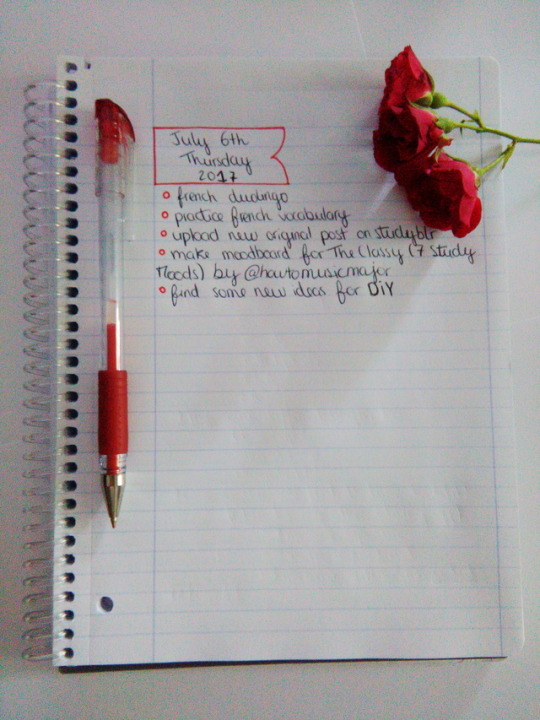 July 6th
Thursday
2017
french duolingo
practice french vocabulary
upload new original post on studyblr
make moodboard for The Classy (7 Study
Moods) by @howtomusicmajor
find some new ideas for DiY